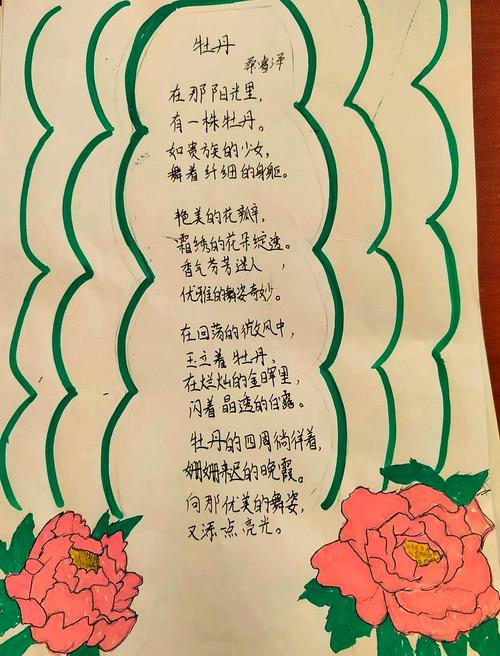 牡丹
在那阳光里,
有一株牡丹。
如贵族的少女,
舞着纤细的身躯。
艳美的花瓣,
霜绣的花朵绽透。
香气芬芳迷人,
优雅的舞姿奇妙。
在回荡的微风中,
玉立着牡丹,
在烂灿的金晖里,
闪着晶透的白露。
牡丹的四周徜徉着,
姗姗来迟的晚霞。
向那优美的舞姿,
又添点亮光。